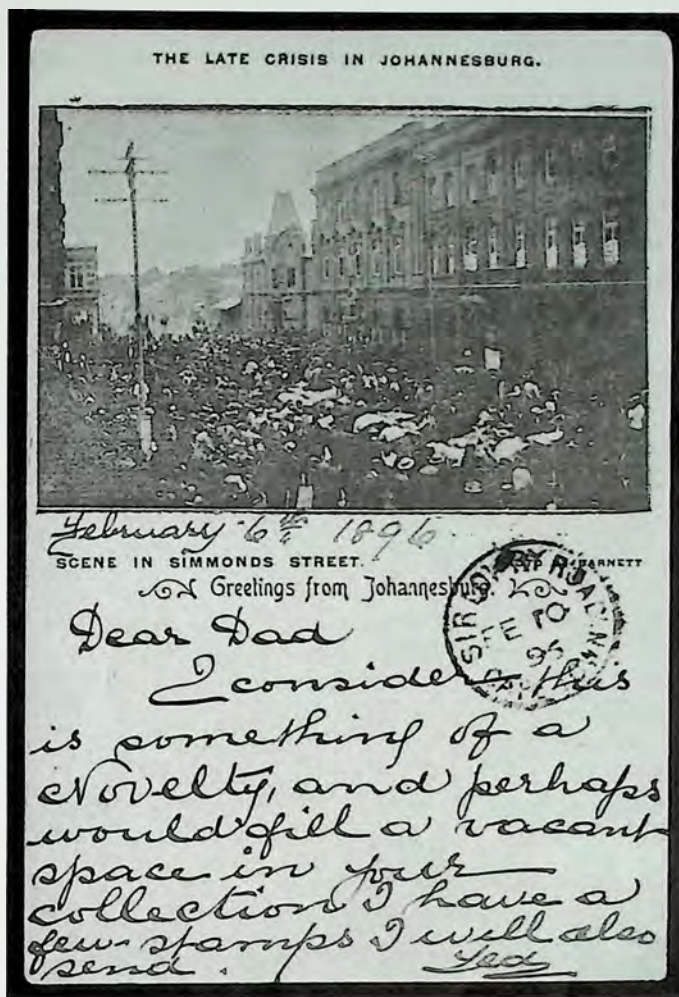 THE LATE CRISIS IN JOHANNESBURG.
February 6th 1896
SCENE IN SIMMONDS STREET.
BARNETT
Greetings from Johannesburg.
SIR LOWRY ROAD
FE 10
96
Dear Dad
I consider this
is something of a
Novelty, and perhaps
would fill a vacant
space in your
collection I have a
few stamps I will also
send.
Ted